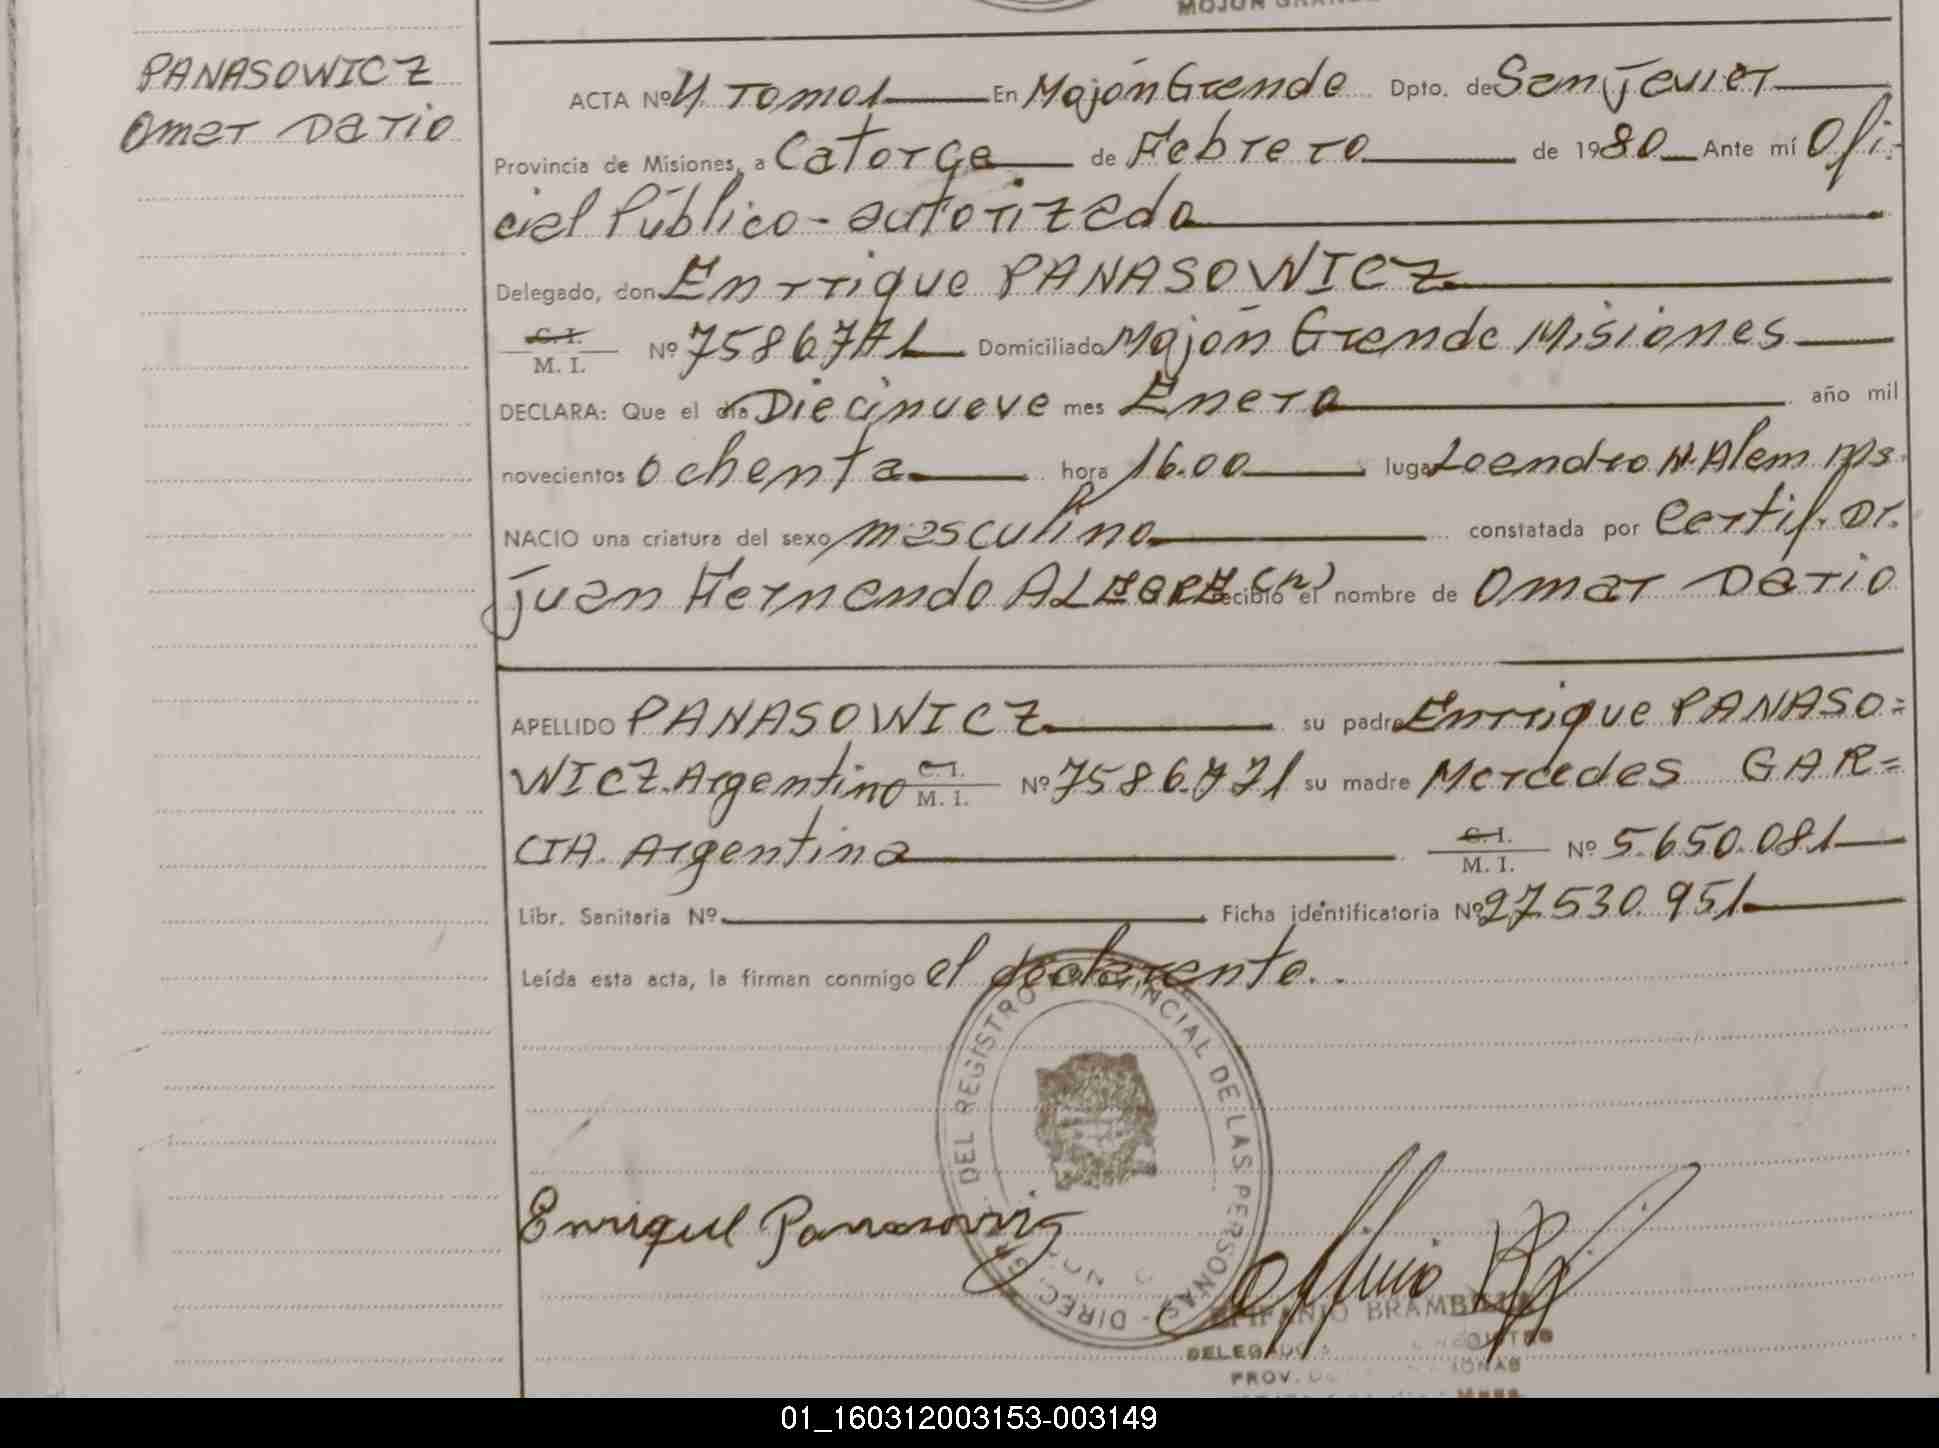 MOJON GRANDE
PANASOWICZ
Omar Dario
ACTA Nº 4 Tomo 1 En Mojón Grande Dpto. de San Javier
Provincia de Misiones, a Catorce de Febrero de 1980 Ante mí Ofi-
cial Público - autorizado
Delegado, don Enrrique PANASOWICZ
C. I.
M. I. Nº 7586771 Domiciliado Mojón Grande Misiones
DECLARA: Que el día Diecinueve mes Enero año mil
novecientos ochenta hora 16.00 lugar Leandro N. Alem Ms.
NACIO una criatura del sexo masculino constatada por Certif. Dr.
Juan Fernando ALEGRE (h) recibió el nombre de Omar Dario
APELLIDO PANASOWICZ su padre Enrrique PANASO=
WICZ. Argentino C. I. M. I. Nº 7586.771 su madre Mercedes GAR=
CIA. Argentina C. I. M. I. Nº 5.650.081
Libr. Sanitaria Nº Ficha identificatoria Nº 27.530.951
Leída esta acta, la firman conmigo el declarante..
DIREC. G DEL REGISTRO PROVINCIAL DE LAS PERSONAS
Enrique Panasowicz
EPIFANIO BRAMBILLA
DELEGADO
PROV. DE
01_160312003153-003149